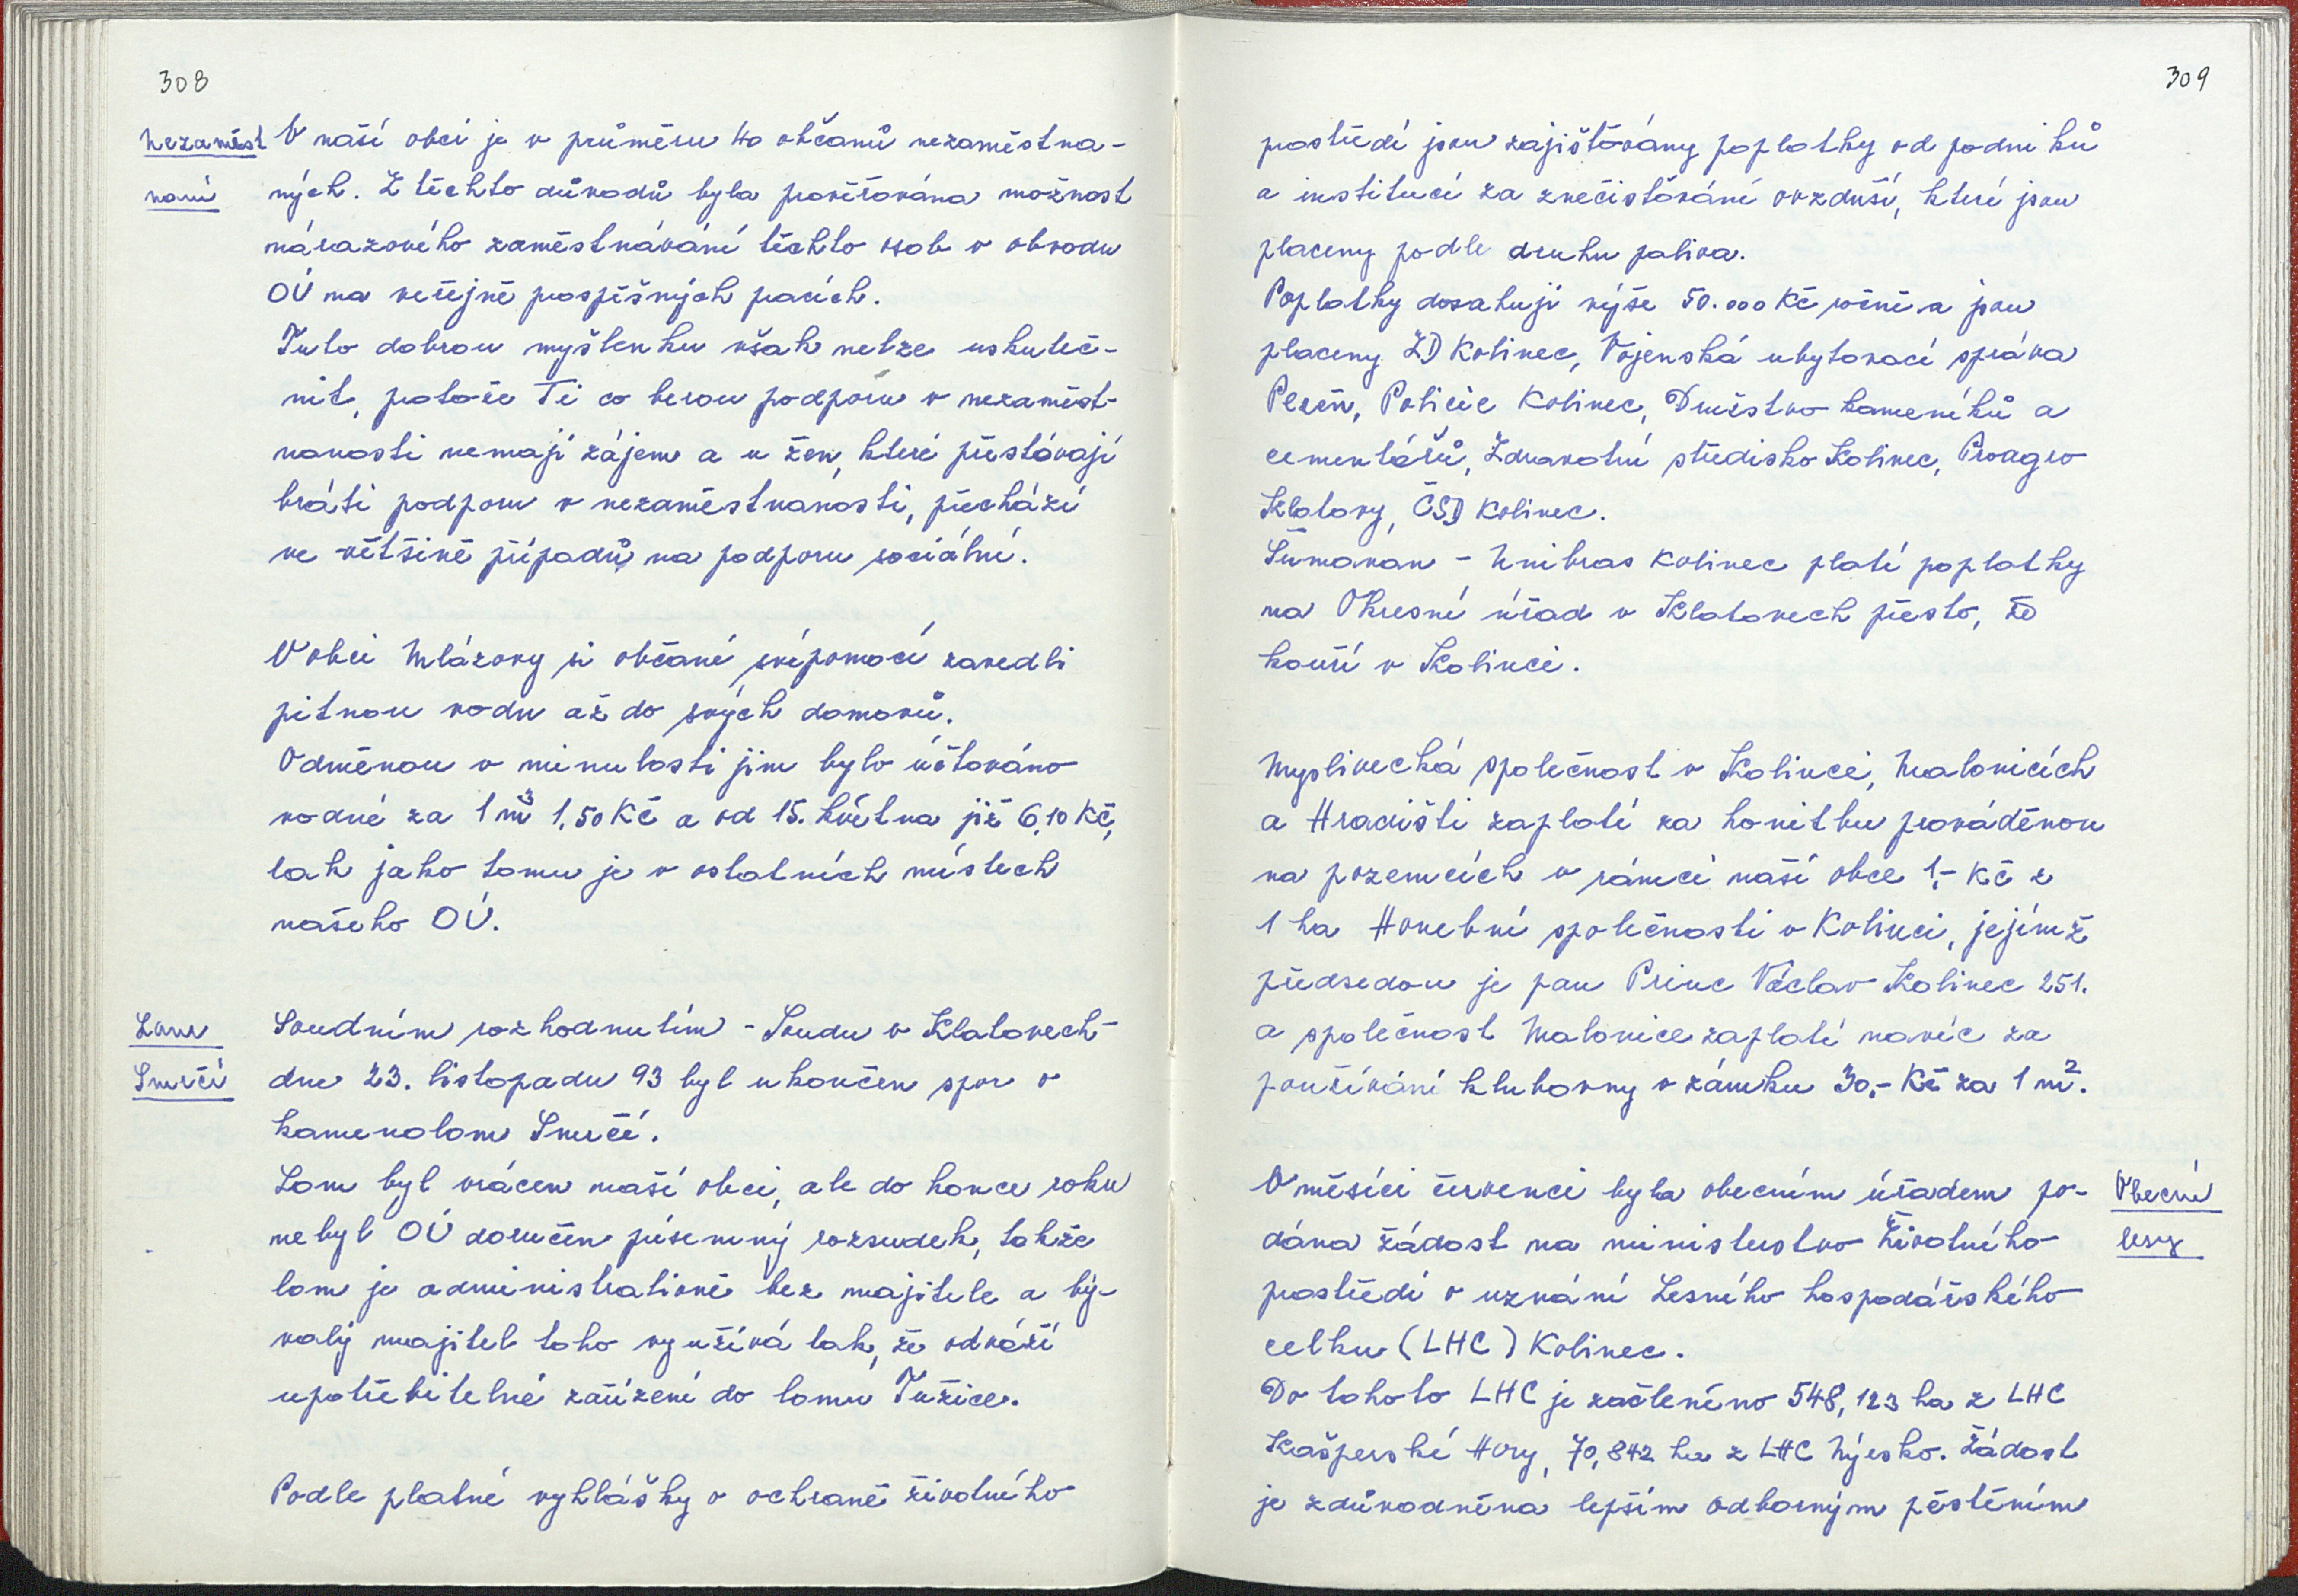 308
Nezaměst
naní
V naší obci je v průměru 40 občanů nezaměstna-
ných. Z těchto důvodů byla prověřována možnost
nárazového zaměstnávání těchto osob v obvodu
OÚ na veřejně prospěšných pracích.
Tuto dobrou myšlenku však nelze uskuteč-
nit, protože Ti co berou podporu v nezaměst-
nanosti nemají zájem a u žen, které přestávají
bráti podporu v nezaměstnanosti, přechází
ve většině případů na podporu sociální.
V obci Mlázovy si občané svépomocí zavedli
pitnou vodu až do svých domovů.
Odměnou v minulosti jim bylo účtováno
vodné za 1 m³ 1,50 Kč a od 15. května již 6,10 Kč,
tak jako tomu je v ostatních místech
našeho OÚ.
Lom
Smrčí
Soudním rozhodnutím - Soudu v Klatovech -
dne 23. listopadu 93 byl ukončen spor o
kamenolom Smrčí.
Lom byl vrácen naší obci, ale do konce roku
nebyl OÚ doručen písemný rozsudek, takže
lom je administrativně bez majitele a bý-
valý majitel toho využívá tak, že odváží
upotřebitelné zařízení do lomu Tužice.
Podle platné vyhlášky o ochraně životního
309
prostředí jsou zajišťovány poplatky od podniků
a institucí za znečisťování ovzduší, které jsou
placeny podle druhu paliva.
Poplatky dosahují výše 50.000 Kč ročně a jsou
placeny ZD Kolinec, Vojenská ubytovací správa
Plzeň, Policie Kolinec, Družstvo kameníků a
cementářů, Zdravotní středisko Kolinec, Proagro
Klatovy, ČSD Kolinec.
Šumavan - Unibras Kolinec platí poplatky
na Okresní úřad v Klatovech přesto, že
kouří v Kolinci.
Myslivecká společnost v Kolinci, Malonicích
a Hradišti zaplatí za honitbu prováděnou
na pozemcích v rámci naší obce 1,- Kč z
1 ha Honební společnosti v Kolinci, jejímž
předsedou je pan Princ Václav Kolinec 251.
a společnost Malonice zaplatí navíc za
používání klubovny v zámku 30,- Kč za 1 m².
Obecní
lesy
V měsíci červenci byla obecním úřadem po-
dána žádost na ministerstvo životního
prostředí o uznání Lesního hospodářského
celku (LHC) Kolinec.
Do tohoto LHC je začleněno 548,123 ha z LHC
Kašperské Hory, 70,842 ha z LHC Nýrsko. Žádost
je zdůvodněna lepším odborným pěstěním